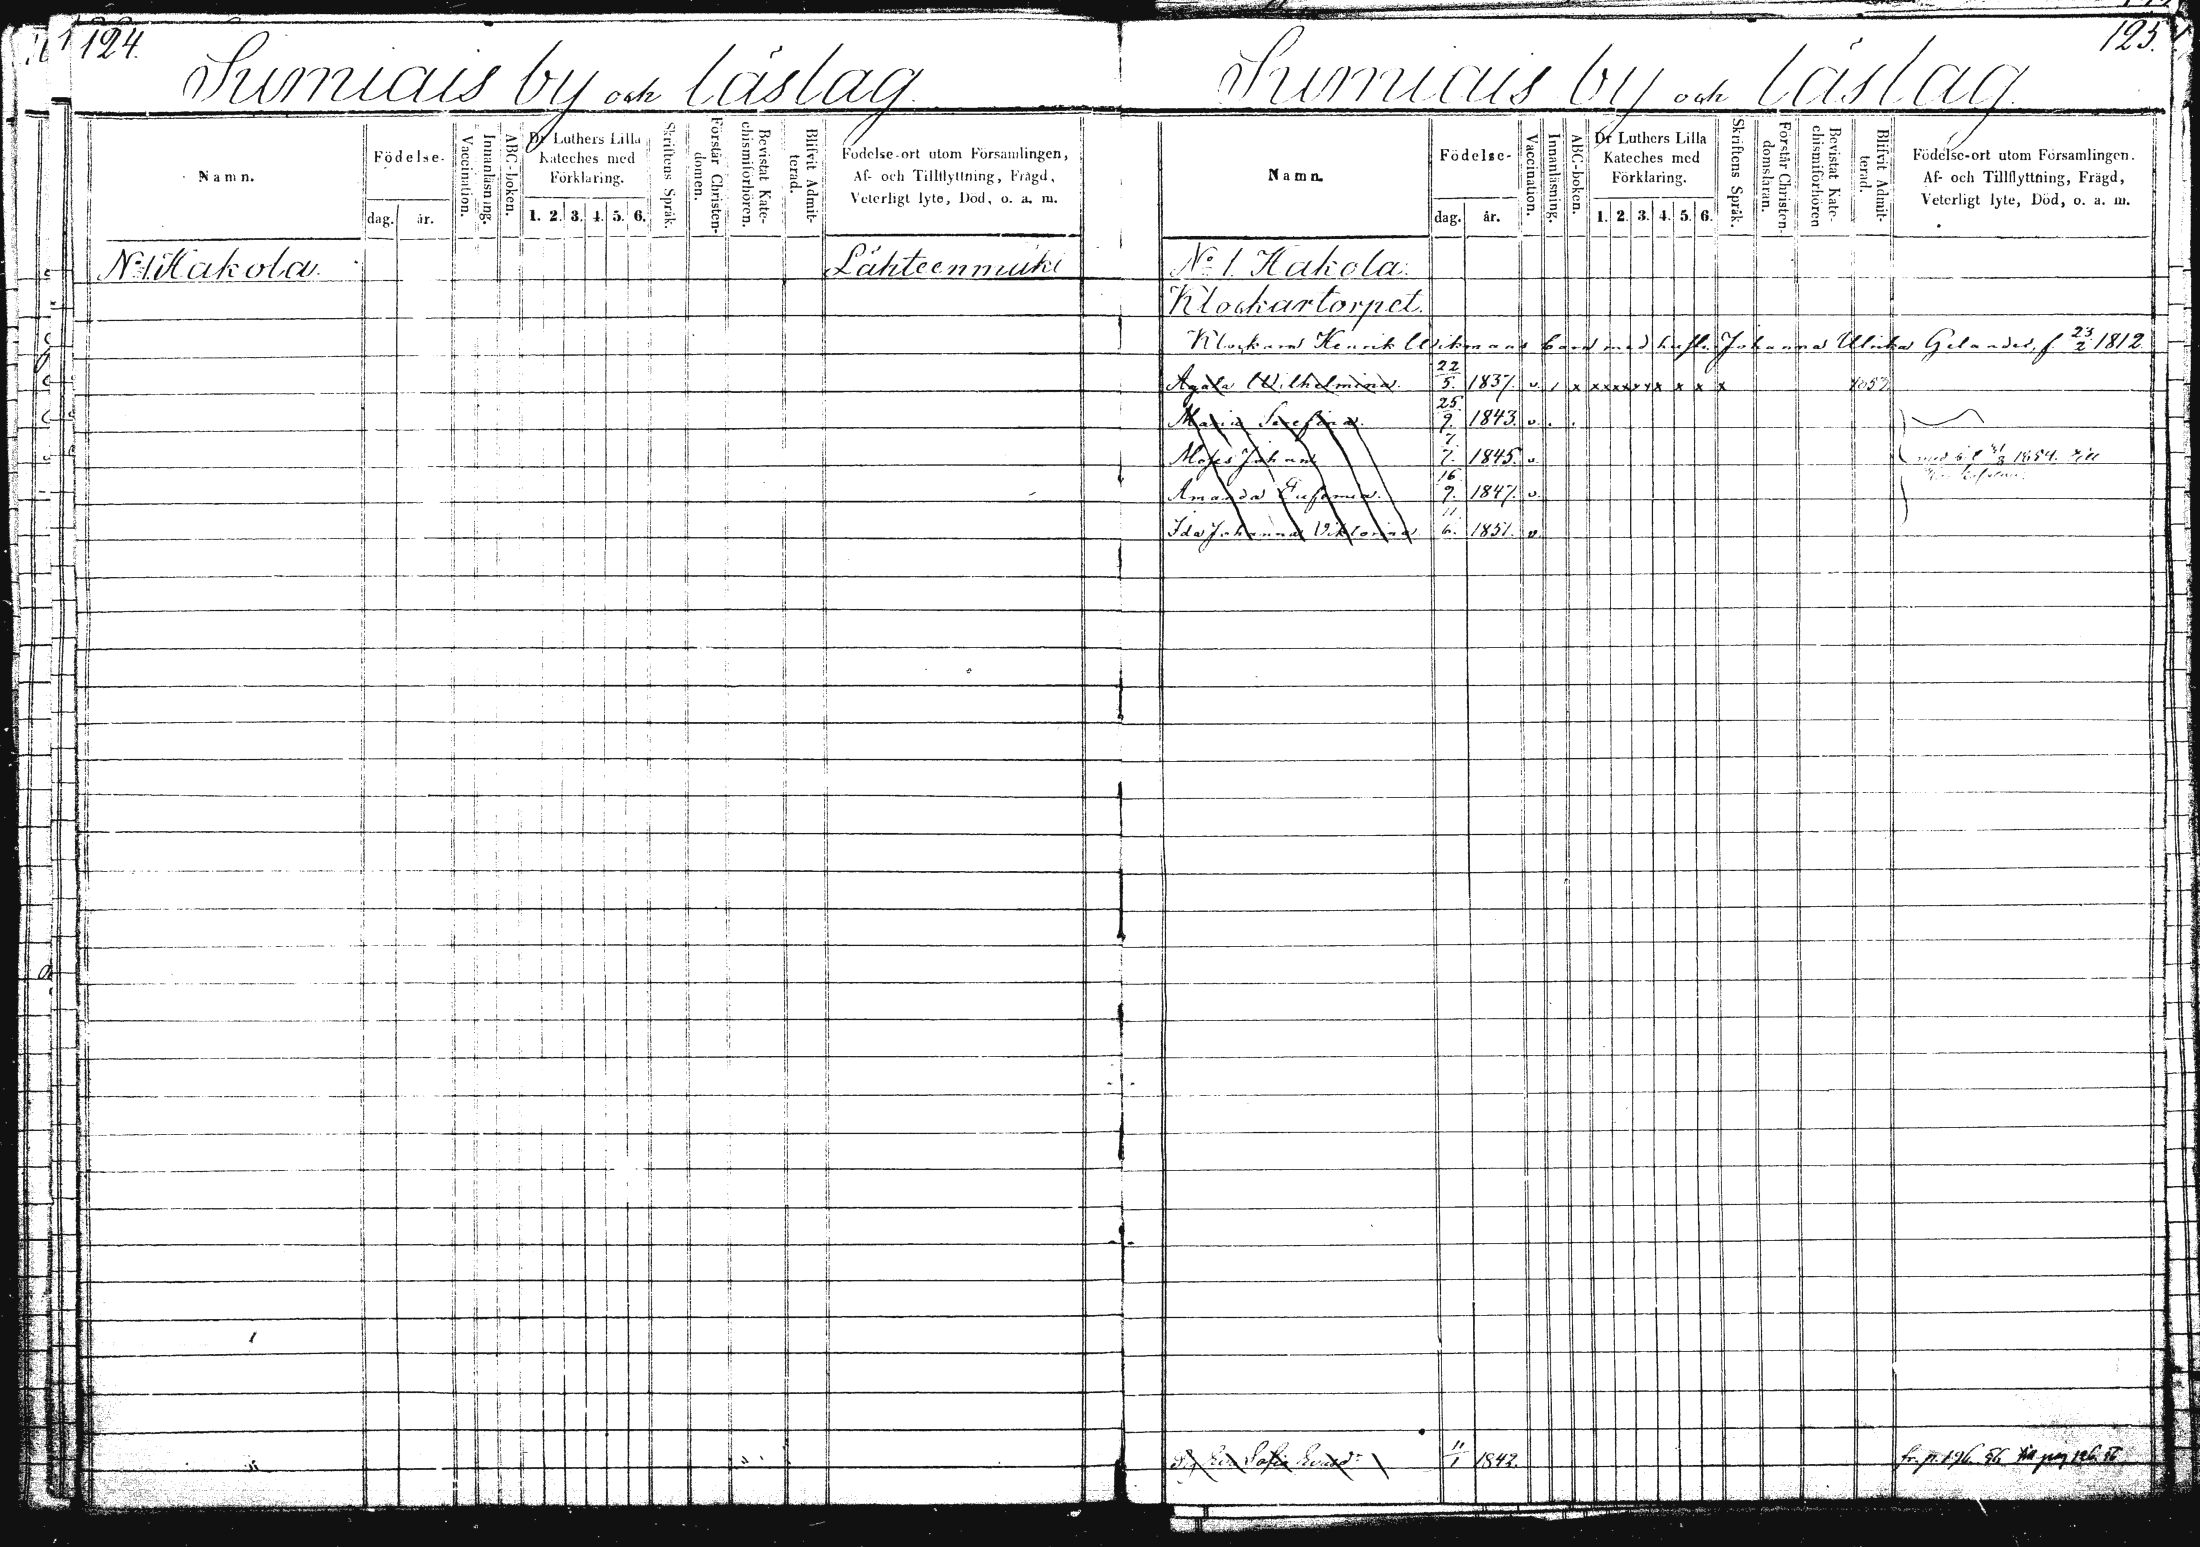 124.
Sumiais by och läslag.
Namn.
Födelse-
dag. år.
Vaccination.
Innanläsning.
ABC-boken.
Dr Luthers Lilla
Kateches med
Förklaring.
1. 2. 3. 4. 5. 6.
Skriftens Språk.
Förstår Christen-
domen.
Bevistat Kate-
chismiförhören.
Blifvit Admit-
terad.
Födelse-ort utom Församlingen,
Af- och Tillflyttning, Frägd,
Veterligt lyte, Död, o. a. m.
No 1. Hakola. Lähteenmäki
125.
Sumiais by och läslag.
Namn.
Födelse-
dag. år.
Vaccination.
Innanläsning.
ABC-boken.
Dr Luthers Lilla
Kateches med
Förklaring.
1. 2. 3. 4. 5. 6.
Skriftens Språk.
Förstår Christen-
domsläran.
Bevistat Kate-
chismiförhören
Blifvit Admit-
terad.
Födelse-ort utom Församlingen.
Af- och Tillflyttning, Frägd,
Veterligt lyte, Död, o. a. m.
No 1. Hakola.
Klockartorpet.
Klockaren Henrik Wikmans barn med hustr. Johanna Ulrika Gelander, f. 23/2 1812.
Agata Wilhelmina. 22/5. 1837. v. / x x x x x x x x x x x
Maria Serefina. 25/9. 1843. v. . .
Moses Johan 7/7. 1845. v. 1854. till
Amanda Eufemia. 16/9. 1847. v.
Ida Johanna Viktorina 11/6. 1851. v.
Sofia 11/1 1842. fr. p. 196. 56. till pag 126. 56.